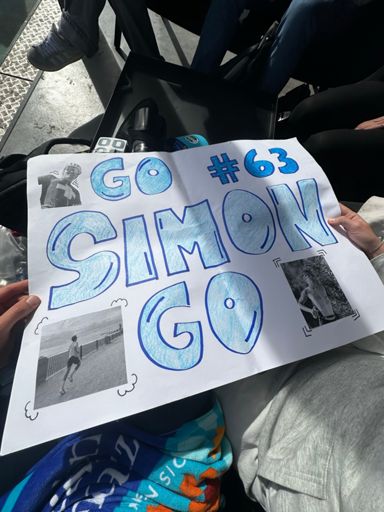 GO #63
SIMON
GO